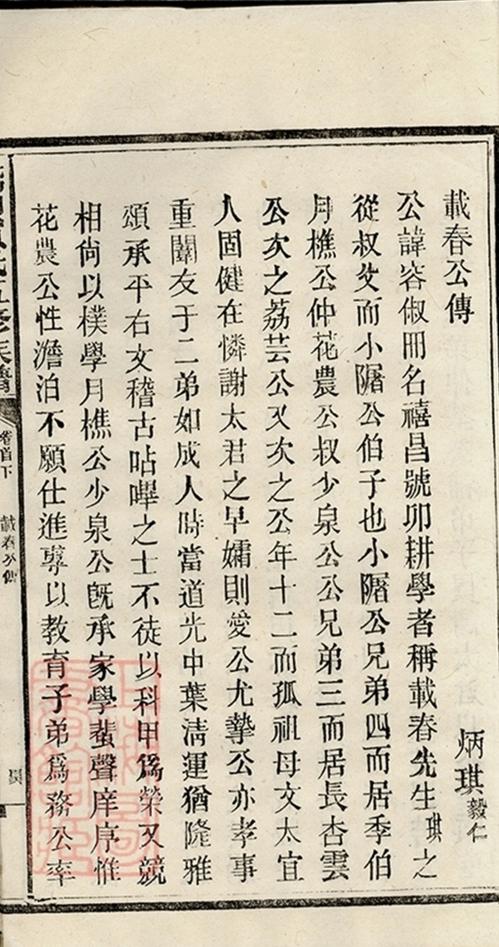 載春公傳
炳琪毅仁
公諱容俶冊名禧昌號卯耕學者稱載春先生琪之
從叔父而小𨼆公伯子也小𨼆公兄弟四而居季伯
月樵公仲花農公叔少泉公公兄弟三而居長杏雲
公次之荔芸公又次之公年十二而孤祖母文太宜
人固健在憐謝太君之早孀則愛公尤摯公亦孝事
重闈友于二弟如成人時當道光中葉清運猶隆雅
頌承平右文稽古呫嗶之士不徒以科甲爲榮又競
相尙以樸學月樵公少泉公旣承家學蜚聲庠序惟
花農公性澹泊不願仕進專以教育子弟爲務公率
卷首下
載春公傳